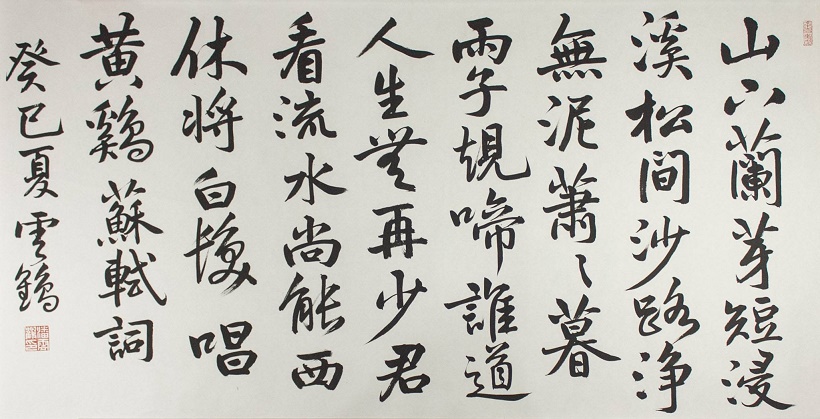 山下蘭芽短浸
溪松間沙路净
無泥蕭〻暮
雨子規啼誰道
人生無再少君
看流水尚能西
休將白髮唱
黄鷄蘇軾詞
癸巳夏雲鶴